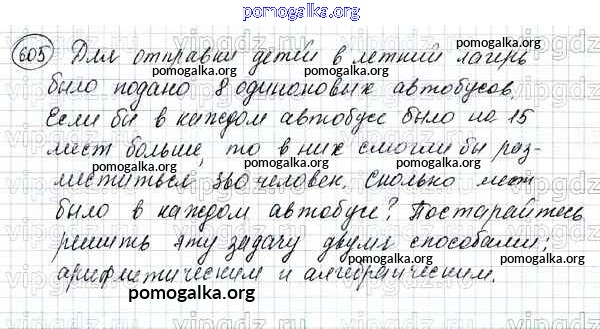 pomogalka.org
605 Для отправки детей в летний лагерь
pomogalka.org pomogalka.org
было подано 8 одинаковых автобусов.
Если бы в каждом автобусе было на 15
мест больше, то в них смогли бы раз-
pomogalka.org pomogalka.org
меститься 360 человек. Сколько мест
было в каждом автобусе? Постарайтесь
pomogalka.org pomogalka.org
решить эту задачу двумя способами:
арифметическим и алгебраическим.
pomogalka.org